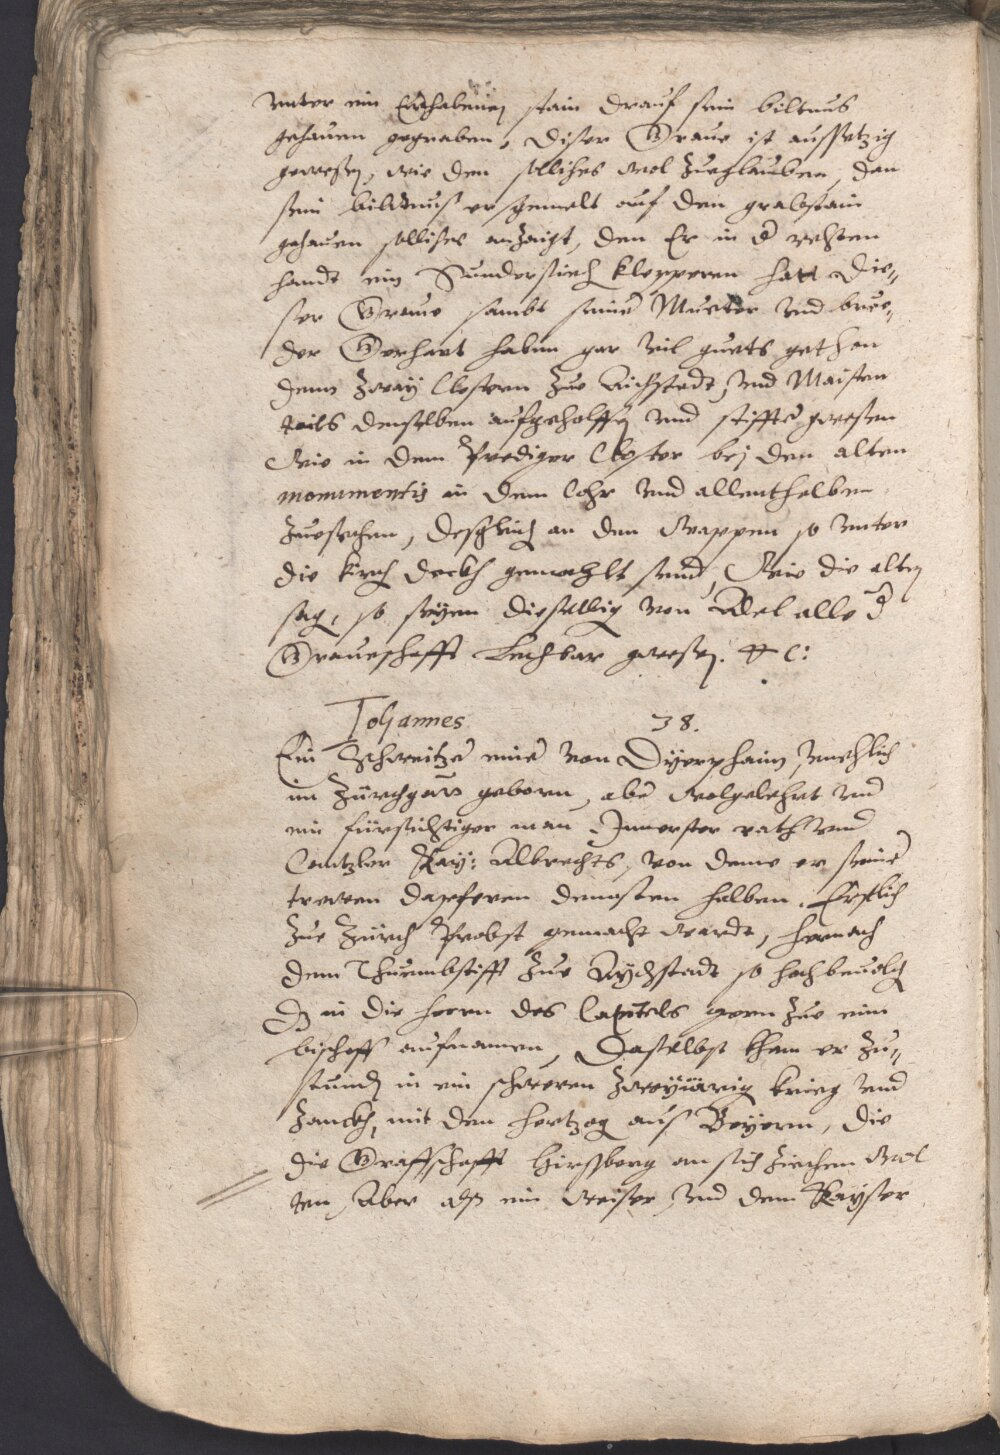 vnter ein Erhabenen stain drauf sein biltnus
gehauen gegraben, diser Graue ist aussetzig
gewesen, wie den solliches wol zueglauben, dan
sein bildtnus ersgemelt auf den grabstain
gehauen solliches anzaigt, den Er in d rechten
handt ein Sundersiech kleppern hatt Die-
ser Graue sambt seiner Mueter vnd brue-
der Gerhart haben gar vil guets gethan
denn zway Clostern zue Aichstadt, vnd Maisten
tails denselben aufgeholffen vnd stiffter gwesen
Wie in dem Prediger Closter bej den alten
monumentis in dem Cohr vnd allenthalben
zuesechen, desgleich an den Wappen so vnter
die kirch deckh gemahlt seind, Wie die alten
sag, so seyen dieselbig von Adel alle d
Graueschafft Lechbar gwesen. etc:
Johannes 38.
Ein Schweitzer einer von Dyerphaim, vnehlich
im Zürchgaw geborn, aber Wolgelehrt vnd
ein fürsichtiger man Innerster rath vnd
Cantzler Kay: Albrechts, von deme er seiner
trewen dapferen diensten halben. Erstlich
zue Zürch Probst gemacht wardt, hernach
dem Thuembstifft zue Aychstadt so hochbeuolch
Dz in die herrn des Capitels gern zue eim
bischoff aufnamen, Daselbst kham er zu-
stundt in ein schweren zweyjärig krieg vnd
Zanckh, mit den hertzog aus Beyern, die
die Graffschafft Hirsperg an sich ziechen Wol
ten, Aber als ein Weiser, vnd dem Kayser